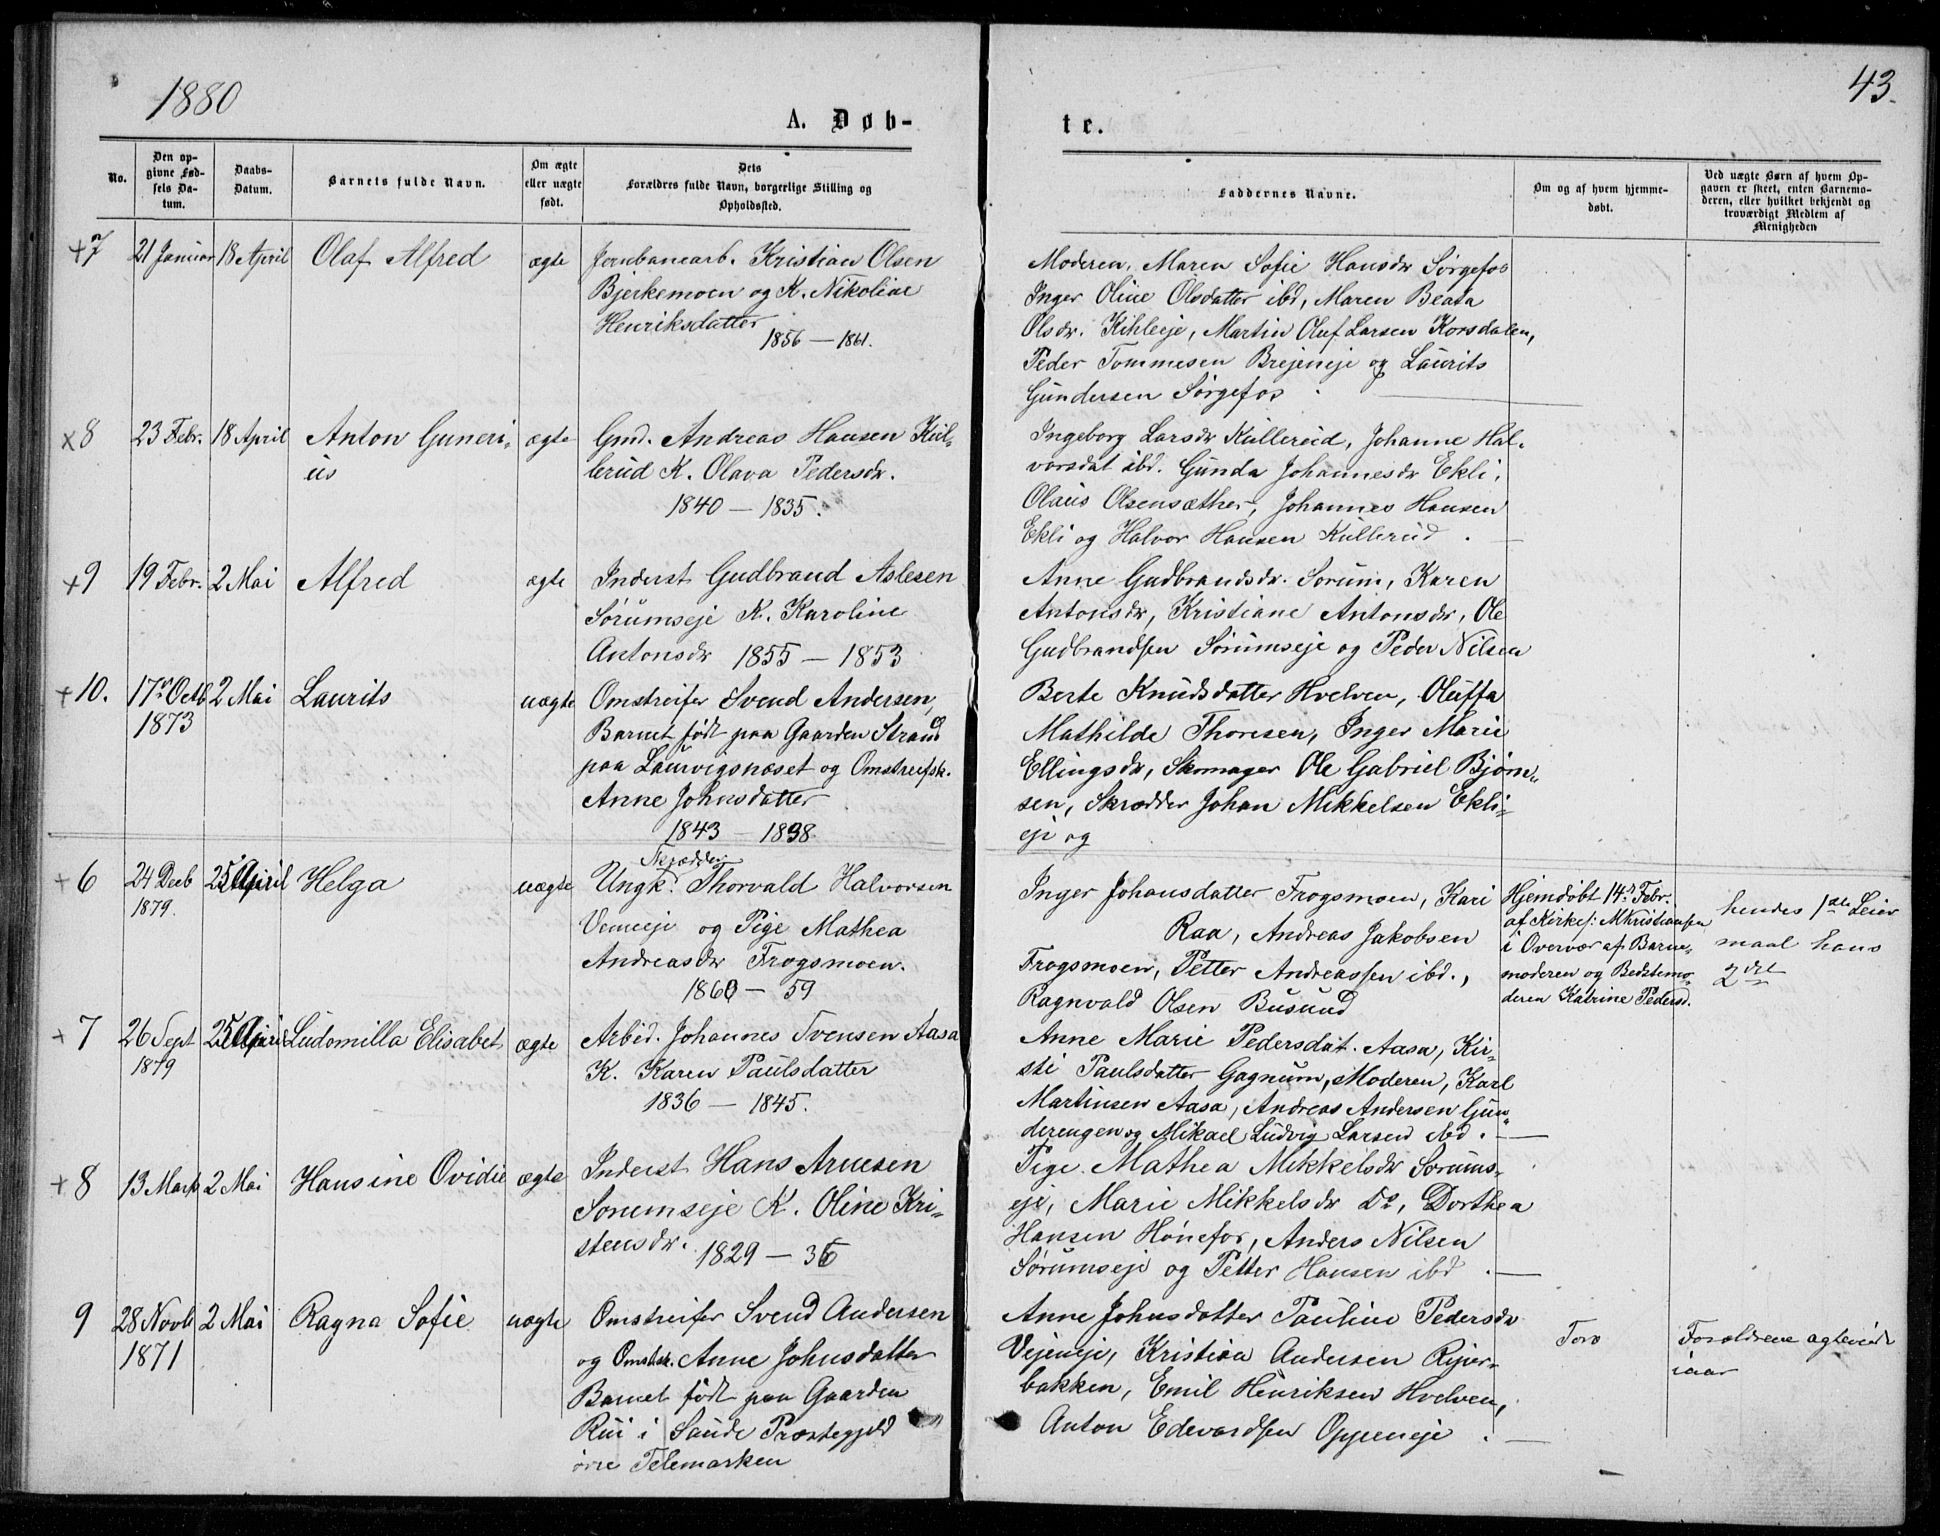 1880
43.
A. Døb-
te.
No.
Den op-
givne Fød-
sels Da-
tum.
Daabs-
Datum.
Barnets fulde Navn.
Om ægte
eller uægte
født.
Dets
Forældres fulde Navn, borgerlige Stilling og
Opholdssted.
Faddernes Navne.
Om og af hvem hjemme-
døbt.
Ved uægte Børn af hvem Op-
gaven er skeet, enten Barnemo-
deren, eller hvilket bekjendt og
troværdigt Medlem af
Menigheden
+7 21 Januar 18 April Olaf Alfred ægte
Jernbanearb. Kristian Olsen
Bjerkemoen og K. Nikoline
Henriksdatter
1856 — 1861.
Moderen, Maren Sofie Hansdr Sørgefos
Inger Oline Olsdatter ibd, Maren Beata
Olsdr. Kihleeje, Martin Oluf Larsen Korsdalen,
Peder Tommesen Brejeneje og Laurits
Gundersen Sørgefos.
x8 23 Febr. 18 April Anton Guneri-
us
ægte
Gmd. Andreas Hansen Kul-
lerud K. Olava Pedersdr.
1840 — 1835.
Ingeborg Larsdr Kullerud, Johanne Hal-
vorsdat ibd. Gunda Johannesdr Ekli,
Olaus Olsensæther, Johannes Hansen
Ekli og Halvor Hansen Kullerud.
+9 19 Febr. 2 Mai Alfred ægte
Inderst Gudbrand Aslesen
Sørumseje K. Karoline
Antonsdr 1855 — 1853
Anne Gudbrandsdr. Sorum, Karen
Antonsdr, Kristiane Antonsdr, Ole
Gudbrandsen Sørumseje og Peder Nilsen
+10. 17de Octb 2 Mai Laurits uægte
1873
Omstreifer Svend Andersen,
Barnet født paa Gaarden Strand
paa Laurvigsnæset og Omstreifsk.
Anne Johnsdatter
1843 — 1838
Berte Knudsdatter Hvelven, Oluffa
Mathilde Thoresen, Inger Marie
Ellingsdr, Skomager Ole Gabriel Bjørn-
sen, Skrædder Johan Mikkelsen Ekli-
eje og
+6 24 Decb 25 April Helga uægte
1879.
Skrædder
Ungk. Thorvald Halvorsen
Vemeeje og Pige Mathea
Andreasdr Frogsmoen.
1860 — 59
Inger Johansdatter Frogsmoen, Kari
Raa, Andreas Jakobsen
Frogsmoen, Petter Andreassen ibd.,
Ragnvald Olsen Busund
Hjemdøbt 14de Febr.
af Kirkes: M Kristiansen
i Overvær af Barne-
moderen og Bedstemo-
deren Katrine Pedersd.
hendes 1ste Leier
maal hans
2det
+7 26 Sept 25 April Ludomilla Elisabet ægte
1879
Arbeid. Johannes Svensen Aasa
K. Karen Paulsdatter
1836 — 1845.
Anne Marie Pedersdat. Aasa, Kir-
sti Paulsdatter Gagnum, Moderen, Karl
Martinsen Aasa, Andreas Andersen Gun-
derengen og Mikael Ludvig Larsen ibd.
+8 13 Marts 2 Mai Hansine Ovidie ægte
Inderst Hans Arnesen
Sorumseje K. Oline Kri-
stensdr. 1829 — 36
Pige Mathea Mikkelsdr Sorums-
eje, Marie Mikkelsdr Do, Dorthea
Hansen Hønefos, Anders Nilsen
Sørumseje og Petter Hansen ibd.
9 28 Novb 2 Mai Ragna Sofie uægte
1871
Omstreifer Svend Andersen
og Omstsk. Anne Johnsdatter
Barnet født paa Gaarden
Rui i Saude Præstegjeld
øvre Telemarken
Anne Johnsdatter Pauline Pedersdr
Vejeneje, Kristian Andersen
bakken, Emil Henriksen Hvelven,
Anton Edevardsen Oppeneje.
Forældrene agteviede
iaar